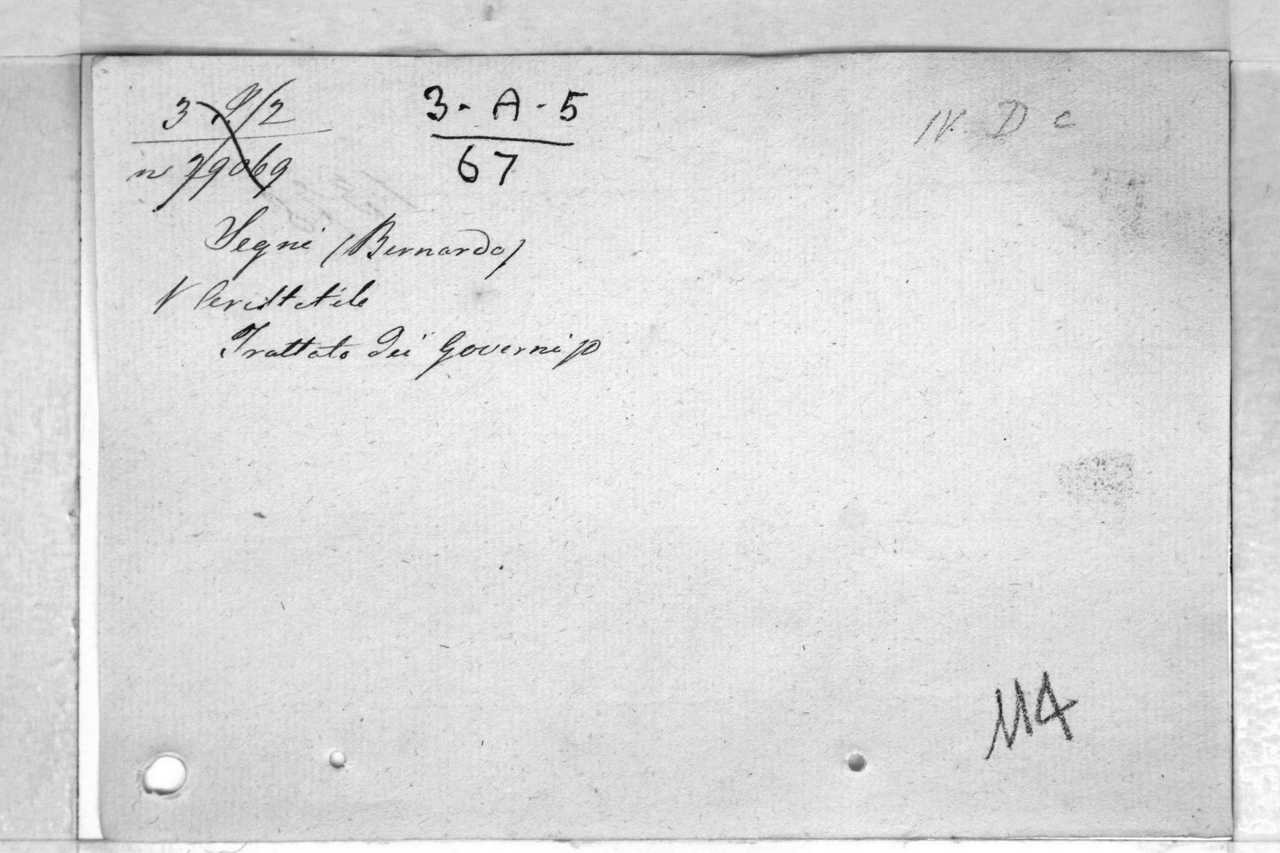 3 9/2
3-A-5
IV. D c
n 79069
67
Segni (Bernardo)
V Aristotele
Trattato dei Governi
114